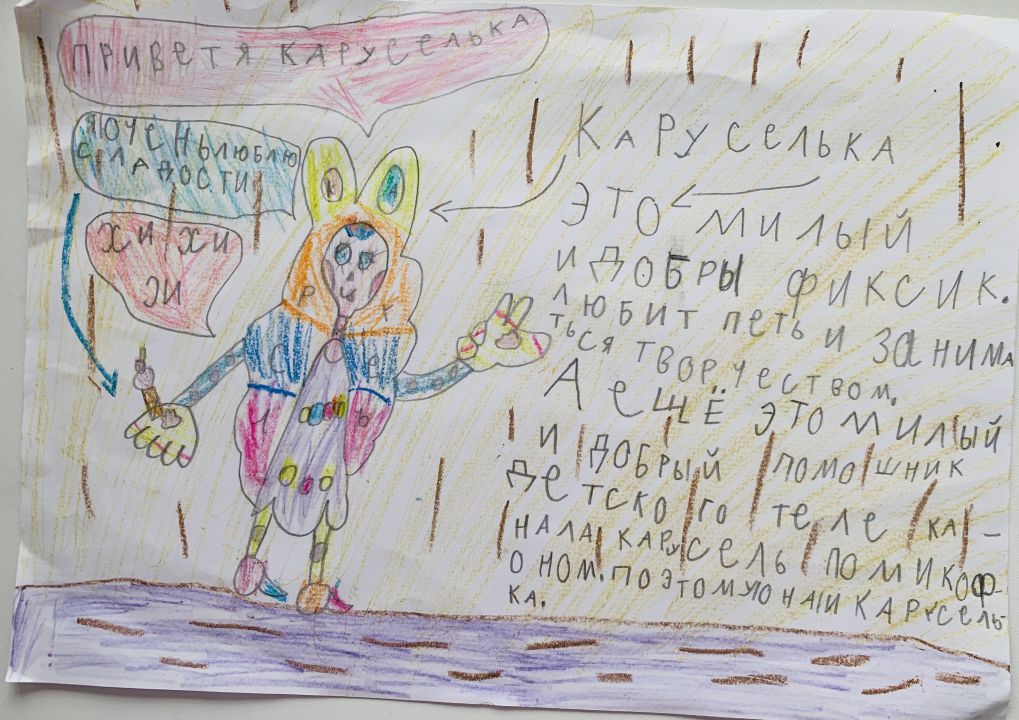 ПРИВЕТЯ КАРУСЕЛЬКА
ЯОЧЕНЬЛЮБЛЮ
СЛАДОСТИ
ХИ ХИ
ЭИ
КАРУСЕЛЬКА
ЭТО МИЛЫЙ
И ДОБРЫ ФИКСИК.
ЛЮБИТ ПЕТЬ И ЗАНИМА
ТЬСЯ ТВОРЧЕСТВОМ.
А еЩЁ ЭТО МИЛЫЙ
И ДОБРЫЙ ПОМОШНИК
ДЕТСКОГО ТЕЛЕ КА-
НАЛА КАРУСЕЛЬ ПОМИКОФ-
ОНОМ. ПОЭТОМУЮНАИ КАРУСЕЛЬ-
КА.
К А
Р У
С Е
Л Ь